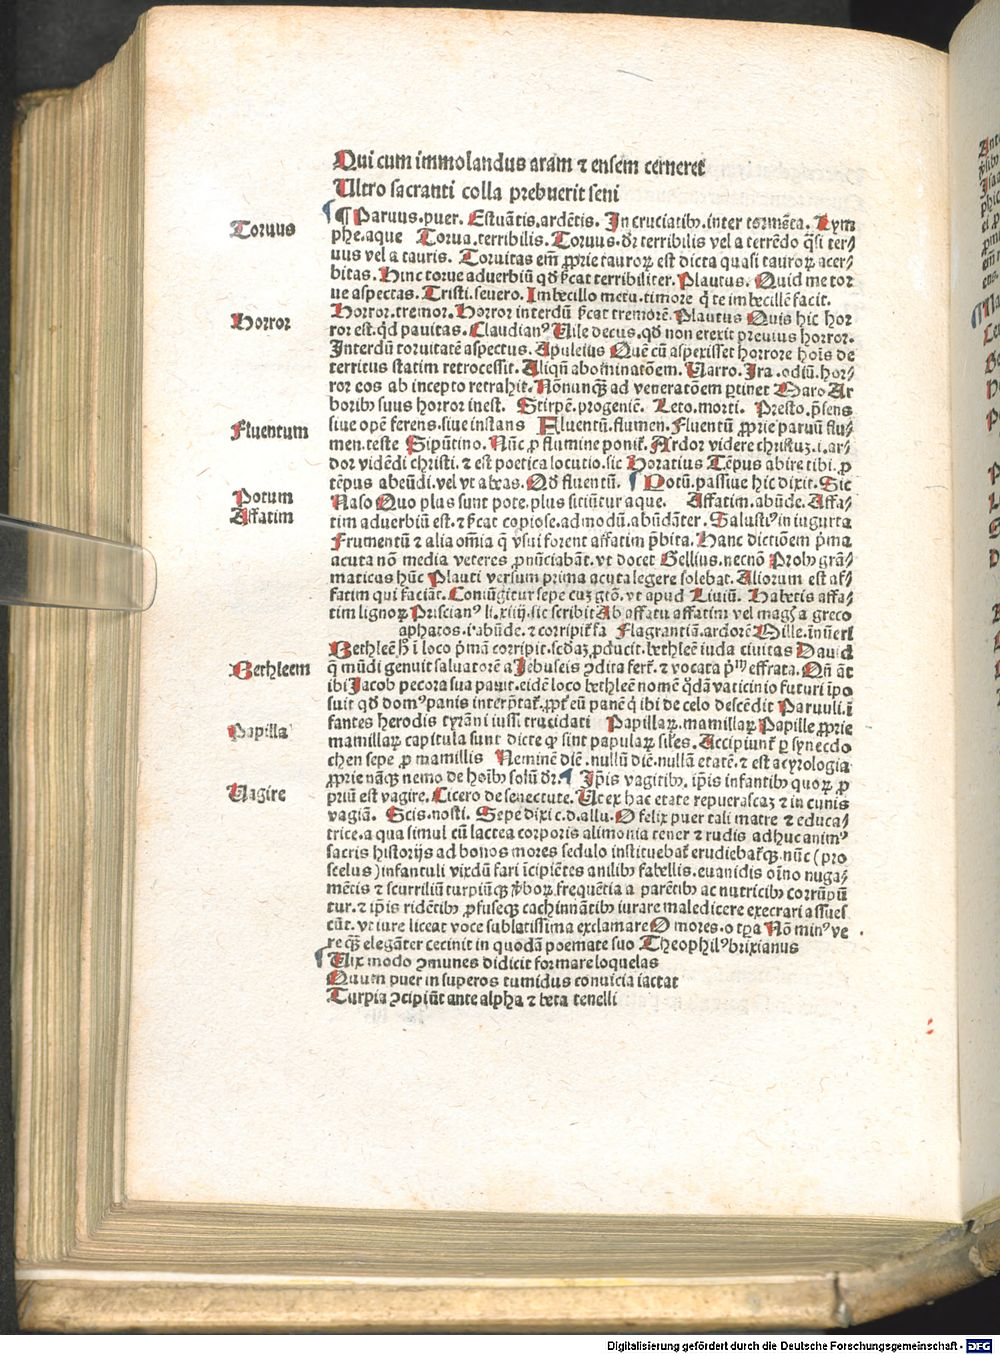 Qui cum immolandus aram ⁊ ensem cerneret
Ultro sacranti colla prebuerit seni
Toruus
¶ Paruus.puer. Estuãtis.ardẽtis. In cruciatibꝫ.inter tormẽta. Lym
phe.aque Torua.terribilis. Toruus.dr̃ terribilis vel a terrẽdo q̃si ter⸗
uus vel a tauris. Toruitas em̃ ꝓprie tauroꝝ est dicta quasi tauroꝝ acer⸗
bitas. Hinc torue aduerbiũ qd̃ sc̃at terribiliter. Plautus. Quid me tor
ue aspectas. Tristi.seuero. Imbecillo metu.timore q̃ te imbecillẽ facit.
Horror
Horror.tremor. Horror interdũ sc̃at tremorẽ. Plautus Quis hic hor
ror est.qd̃ pauitas. Claudianꝰ Uile decus.qd̃ non erexit preuius horror.
Interdũ toruitatẽ aspectus. Apuleius Quẽ cũ aspexisset horrore hoĩs de
territus statim retrocessit. Aliqñ abominatõem. Uarro. Ira.odiũ.hor⸗
ror eos ab incepto retrahit. Nõnunqȝ ad veneratõem ꝑtinet Maro Ar
boribꝫ suus horror inest. Stirpẽ.progeniẽ. Leto.morti. Presto.p̃sens
siue opẽ ferens.siue instans Fluentũ.flumen. Fluentũ ꝓprie paruũ flu⸗
Fluentum
men.teste Sipũtino. Nũc ꝓ flumine ponit̃. Ardor videre christuꝫ.i.ar⸗
dor vidẽdi christi.⁊ est poetica locutio.sic Horatius Tẽpus abire tibi.ꝓ
tẽpus abeũdi.vel vt abeas. Qd̃ fluentũ. Potũ.passiue hic dixit. Sic
Potum
Naso Quo plus sunt pote.plus sitiũtur aque. Affatim.abũde. Affa⸗
Affatim
tim aduerbiũ est.⁊ sc̃at copiose.admodũ.abũdãter. Salustꝰ in iugurta
Frumentũ ⁊ alia om̃ia q̃ vsui forent affatim p̃bita. Hanc dictiõem p̃ma
acuta nõ media veteres ꝓnũciabãt.vt docet Gellius.necnõ Probꝫ grã⸗
maticus hũc Plauti versum prima acuta legere solebat. Aliorum est af⸗
fatim qui faciãt. Coniũgitur sepe cuꝫ gtõ.vt apud Liuiũ. Habetis affa⸗
tim lignoꝝ Priscianꝰ li.xiiij.sic scribit Ab affatu affatim vel magꝭ a greco
aphatos.i.abũde.⁊ corripit̃ fa Flagrantiã.ardorẽ Mille.innũeri
Bethleẽ hꝫ ĩ loco p̃mã corripit.scd̃aꝫ ꝓducit.bethleẽ iuda ciuitas Dauid
Bethleem
q̃ mũdi genuit saluatorẽ a Jebuseis ꝯdita fert̃.⁊ vocata p̃ᵐ effrata. Qñ ãt
ibi Jacob pecora sua pauit.eidẽ loco bethleẽ nomẽ q̃dã vaticinio futuri ĩpo
suit qd̃ domꝰ panis interp̃tat̃.ꝓpt̃ eũ panẽ q̃ ibi de celo descẽdit Paruuli.ĩ
fantes herodis tyrãni iussu trucidati Papillaꝝ.mamillaꝝ Papille ꝓprie
Papilla
mamillaꝝ capitula sunt dicte qꝫ sint papulaꝝ siles. Accipiunt̃ ꝑ synecdo
chen sepe ꝓ mamillis Neminẽ diẽ.nullũ diẽ.nullã etatẽ.⁊ est acyrologia
ꝓprie nãqꝫ nemo de hoĩbꝫ solũ dr̃. Ip̃is vagitibꝫ.ip̃is infantibꝫ quoꝝ ꝓ
Uagire
priũ est vagire. Cicero de senectute. Ut ex hac etate repuerascaꝫ ⁊ in cunis
vagiã. Scis.nosti. Sepe dixi c.d.allu. O felix puer tali matre ⁊ educa⸗
trice.a qua simul cũ lactea corporis alimonia tener ⁊ rudis adhuc animꝰ
sacris historijs ad bonos mores sedulo instituebat̃ erudiebat̃qꝫ.nũc (pro
scelus) infantuli vixdũ fari ĩcipiẽtes anilibꝫ fabellis.euanidis oĩno nuga⸗
mẽtis ⁊ scurriliũ turpiũqꝫ ꝟboꝝ frequẽtia a parẽtibꝫ ac nutricibꝫ corrũpũ
tur.⁊ ip̃is ridẽtibꝫ ꝓfuseqꝫ cachinnãtibꝫ iurare maledicere execrari assues
cũt.vt iure liceat voce sublatissima exclamare O mores.o tꝑa Nõ minꝰ ve
re qȝ elegãter cecinit in quodã poemate suo Theophilꝰ brixianus
Uix modo ꝯmunes didicit formare loquelas
Quum puer in superos tumidus conuicia iactat
Turpia ꝯcipiũt ante alpha ⁊ beta tenelli
Digitalisierung gefördert durch die Deutsche Forschungsgemeinschaft - DFG